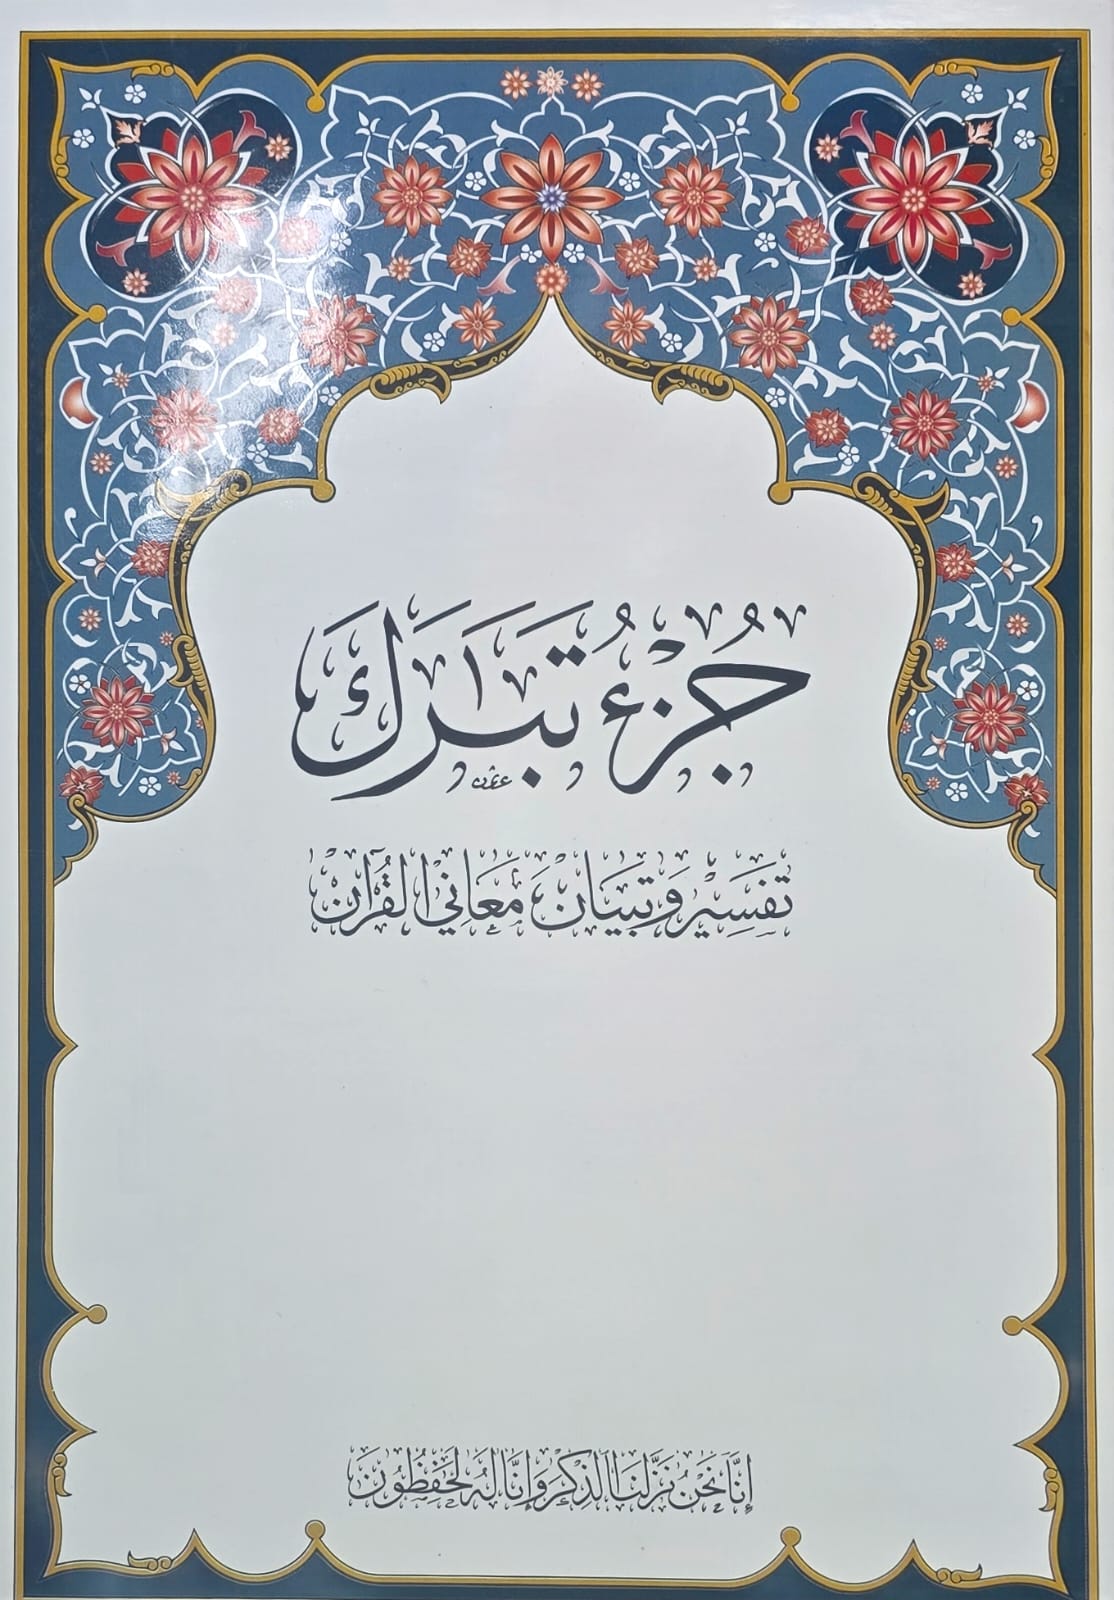 جُزْءُ تَبَٰرَكَ
عثمٰن
تَفْسِيْر وَتبيَان مَعَانِي القُرْآن
إِنَّا نَحْنُ نَزَّلْنَا ٱلذِّكْرَ وَإِنَّا لَهُۥ لَحَٰفِظُونَ